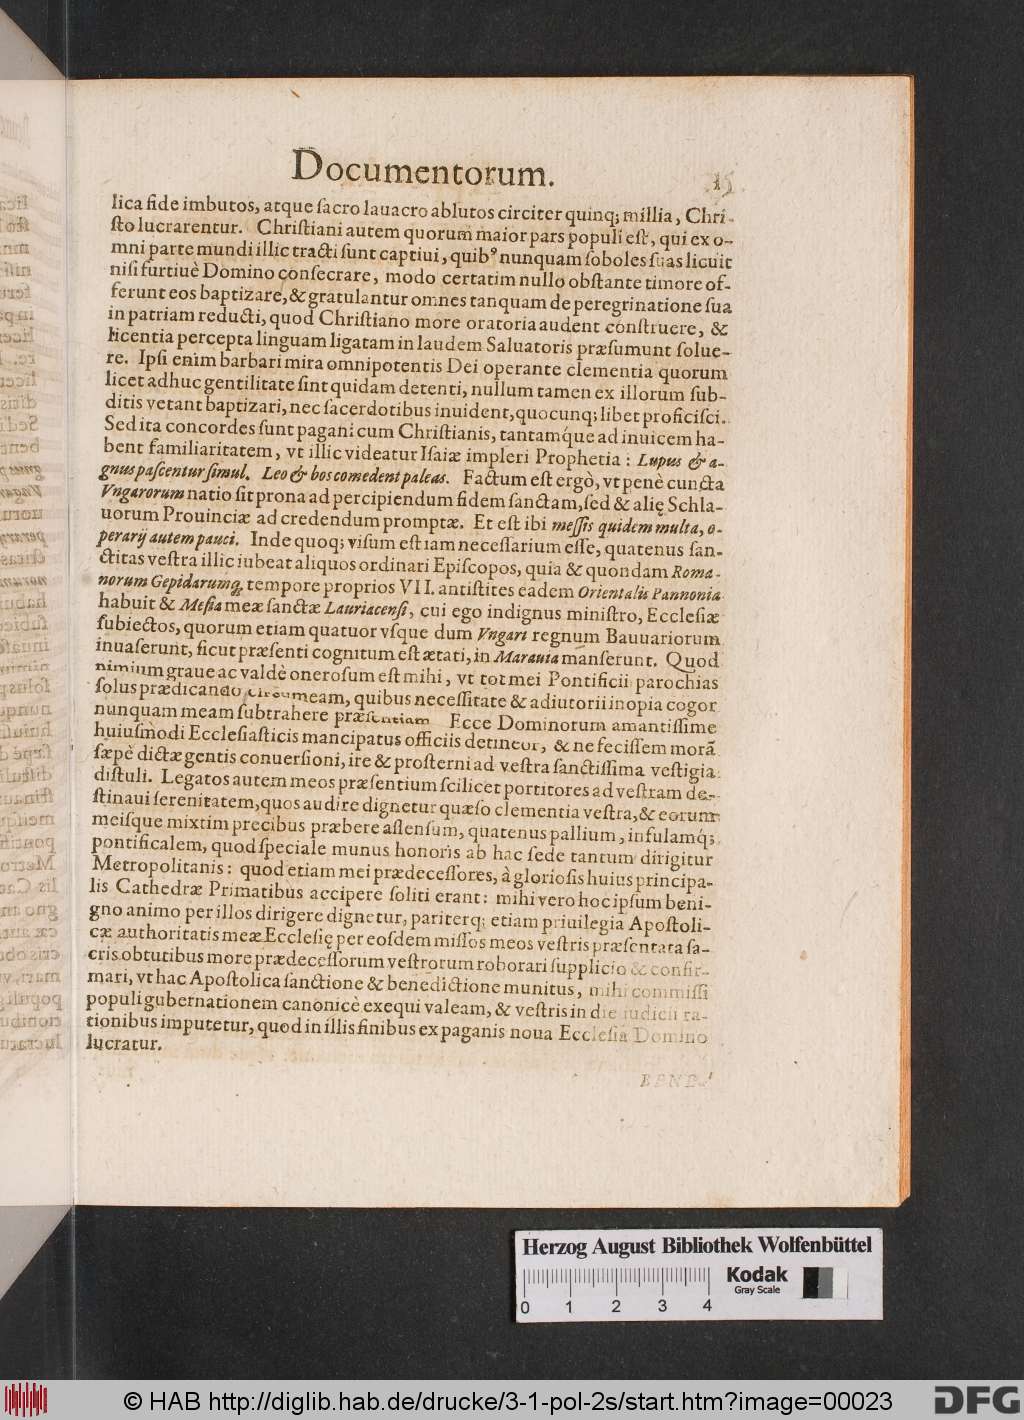 Documentorum. 15
lica fide imbutos, atque ſacro lauacro ablutos circiter quinq; millia, Chri-
ſto lucrarentur. Chriſtiani autem quorum maior pars populi eſt, qui ex o-
mni parte mundi illic tracti ſunt captiui, quibꝰ nunquam ſoboles ſuas licuit
niſi furtiuè Domino conſecrare, modo certatim nullo obſtante timore of-
ferunt eos baptizare, & gratulantur omnes tanquam de peregrinatione ſua
in patriam reducti, quod Chriſtiano more oratoria audent conſtruere, &
licentia percepta linguam ligatam in laudem Saluatoris præſumunt ſolue-
re. Ipſi enim barbari mira omnipotentis Dei operante clementia quorum
licet adhuc gentilitate ſint quidam detenti, nullum tamen ex illorum ſub-
ditis vetant baptizari, nec ſacerdotibus inuident, quocunq; libet proficiſci.
Sed ita concordes ſunt pagani cum Chriſtianis, tantamq́ue ad inuicem ha-
bent familiaritatem, vt illic videatur Iſaiæ impleri Prophetia: Lupus & a-
gnus paſcentur ſimul. Leo & bos comedent paleas. Factum eſt ergò, vt penè cuncta
Vngarorum natio ſit prona ad percipiendum fidem ſanctam, ſed & alię Schla-
uorum Prouinciæ ad credendum promptæ. Et eſt ibi meſſis quidem multa, o-
perarij autem pauci. Inde quoq; viſum eſt iam neceſſarium eſſe, quatenus ſan-
ctitas veſtra illic iubeat aliquos ordinari Epiſcopos, quia & quondam Roma-
norum Gepidarumq; tempore proprios VII. antiſtites eadem Orientalis Pannonia
habuit & Meſia meæ ſanctæ Lauriacenſi, cui ego indignus miniſtro, Eccleſiæ
ſubiectos, quorum etiam quatuor vſque dum Vngari regnum Bauuariorum
inuaſerunt, ſicut præſenti cognitum eſt ætati, in Marauia manſerunt. Quod
nimium graue ac valdè oneroſum eſt mihi, vt tot mei Pontificii parochias
ſolus prædicando circumeam, quibus neceſſitate & adiutorii inopia cogor
nunquam meam ſubtrahere præſentiam. Ecce Dominorum amantiſſime
huiuſmodi Eccleſiaſticis mancipatus officiis detineor, & ne feciſſem morã
ſæpè dictæ gentis conuerſioni, ire & proſterni ad veſtra ſanctiſſima veſtigia
diſtuli. Legatos autem meos præſentium ſcilicet portitores ad veſtram de-
ſtinaui ſerenitatem, quos audire dignetur quæſo clementia veſtra, & eorum
meiſque mixtim precibus præbere aſſenſum, quatenus pallium, infulamq́;
pontificalem, quod ſpeciale munus honoris ab hac ſede tantum dirigitur
Metropolitanis: quod etiam mei prædeceſſores, à glorioſis huius principa-
lis Cathedræ Primatibus accipere ſoliti erant: mihi vero hoc ipſum beni-
gno animo per illos dirigere dignetur, pariterq; etiam priuilegia Apoſtoli-
cæ authoritatis meæ Eccleſię per eoſdem miſſos meos veſtris præſentata ſa-
cris obtutibus more prædeceſſorum veſtrorum roborari ſupplicio & confir-
mari, vt hac Apoſtolica ſanctione & benedictione munitus, mihi commiſſi
populi gubernationem canonicè exequi valeam, & veſtris in die iudicii ra-
tionibus imputetur, quod in illis finibus ex paganis noua Eccleſia Domino
lucratur.
BENE-
Herzog August Bibliothek Wolfenbüttel
Kodak
Gray Scale
0 1 2 3 4
© HAB http://diglib.hab.de/drucke/3-1-pol-2s/start.htm?image=00023
DFG